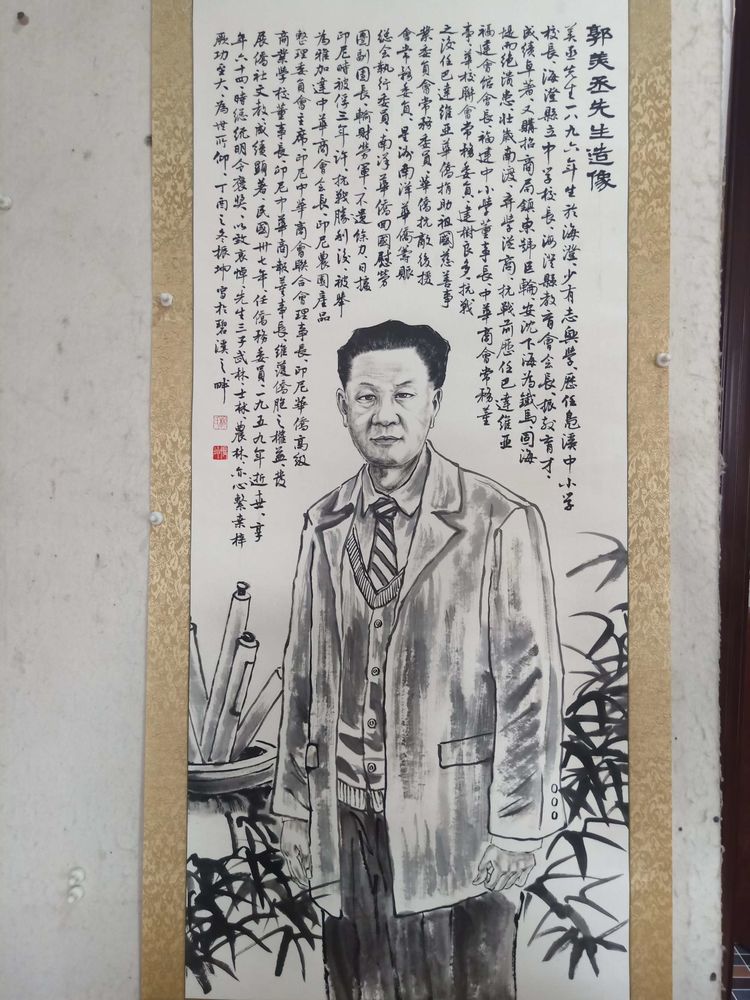 郭美丞先生造像
美丞先生一八九六年生於海澄少有志與學歷任龍溪中小學
校長海澄縣立中學校長海澄縣教育會會長振敎育才
成績卓著又購招商局鎮東號巨輪安沈下海為鐵馬固海
堤而絕潰患壯歲南渡弃學從商抗戰前歷任巴達維亞
福建會館會長福建中小學董事長中華商會常務董
事華校聯會常務委員建樹良多抗戰
之後任巴達維亞華僑捐助祖國慈善事
業委員會常務委員華僑抗敵後援
會常務委員星洲南洋華僑籌賑
總會執行委員南洋華僑回國慰勞
團副團長輸財勞軍不遺餘力日據
印尼時被俘三年許抗戰勝利後被舉
為雅加達中華商會會長印尼農園產品
整理委員會主席印尼中華商會聯合會理事長印尼華僑高級
商業學校董事長印尼中華商報董事長維護僑胞之權益發
展僑社文教成績顯著民國卅七年任僑務委員一九五九年逝世享
年六十四時總統明令褒獎以致哀悼先生三子武林士林農林亦心繫桑梓
厥功至大為世所仰丁酉之冬振坤寫於碧溪之畔